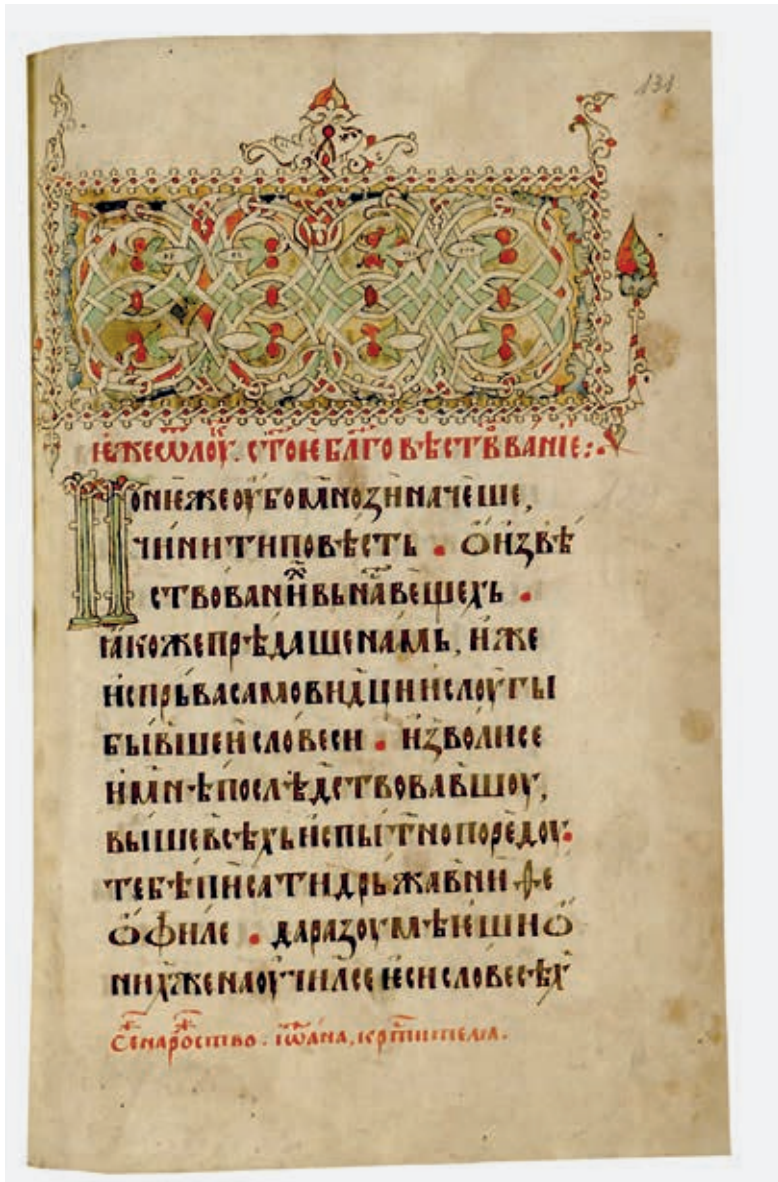 131
ѥже ѿ лоуⷦ҇. ст҃ое бл҃говѣствⷪ҇ванїе:
Понѥже оубо мнози наче́ше,
чинити повѣсть . ѡ извѣ
ствованныⷯ вь наⷭ҇ ве́щехь .
ꙗкоже прѣдаше намь, иже
испрьва самовидци и слоугы
бывшеи словеси . изволисе
и мнѣ послѣдствовавшоу,
выше всѣхь испытно по редоу.
тебѣ писати дрьжавни фе
ѡфиле . да разоумѣѥши ѡ
нихже наоучилсе ѥси словесѣⷯ
Сеⷣ на рⷤоство . іѡⷩана, крⷭ҇тителꙗ.